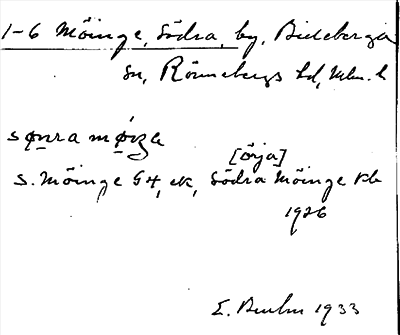 1-6 Möinge, Södra, by, Billeberga
sn, Rönnebergs hd, Mlm. l
sønra møiŋa
[örja]
S. Möinge G4, ek, Södra Möinge Kb
1926
E. 1933